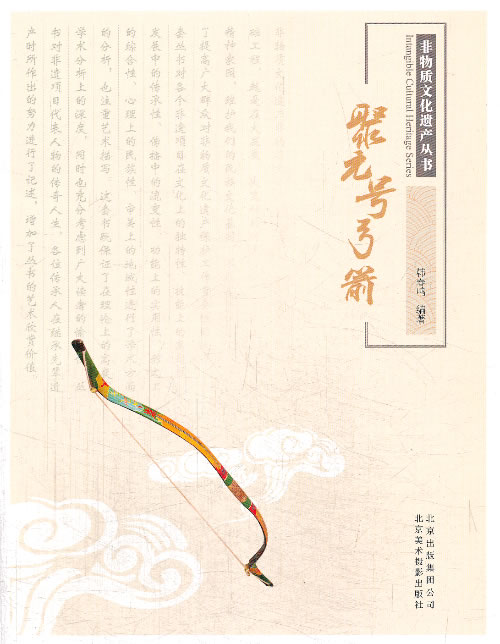 非物质文化遗产丛书
Intangible Cultural Heritage Series
聚元号弓箭
韩春鸣 编著
非物质文化遗
础工程，
精神家园，维护我们的民族文化
了提高广大群众对非物质文化遗产保护
委丛书对各个非遗项目在文化上的独特性、
发展中的传承性、传播中的流变性、功能上的
的综合性、心理上的民族性、审美上的地域性进行了学术方面
的分析，也注重艺术描写。这套书既保证了在理论上的高
学术分析上的深度，同时也充分考虑到广大读者的愉
书对非遗项目代表人物的传奇人生，各位传承人在继承先辈遗
产时所作出的努力进行了记述，增加了丛书的艺术欣赏价值。
北京出版集团公司
北京美术摄影出版社